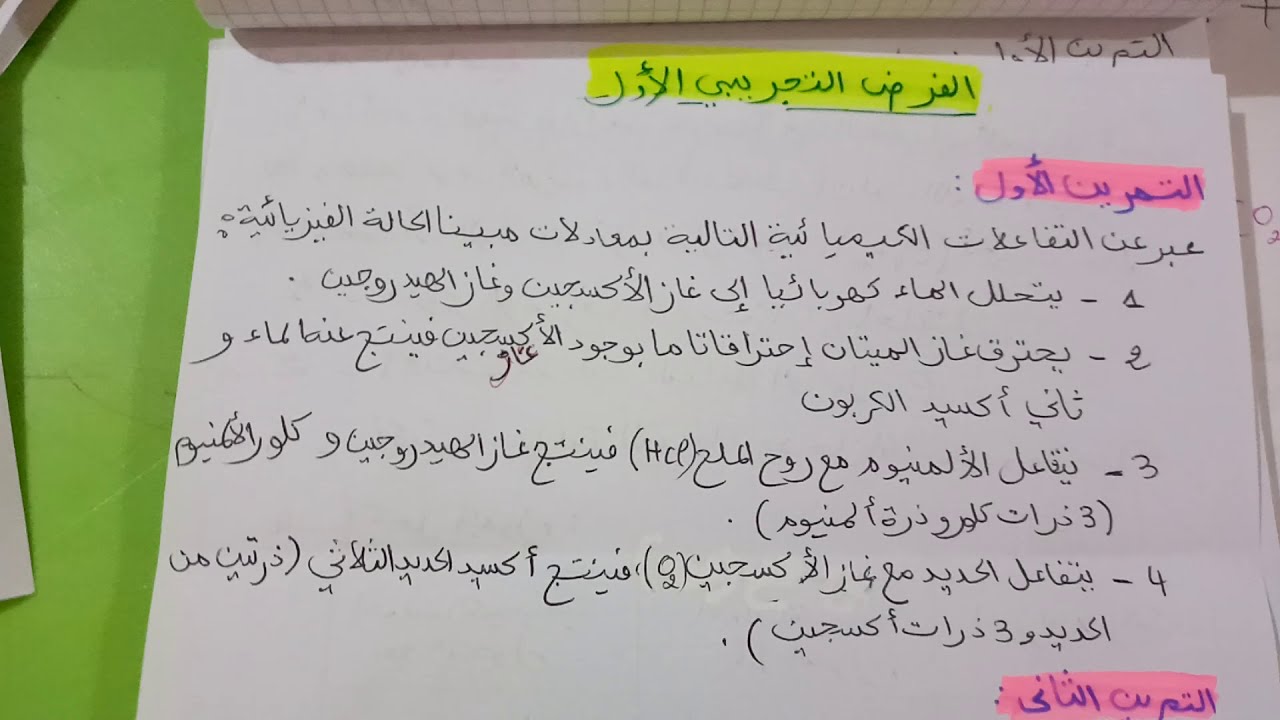 التمرين الأول
الفرض التجريبي الأول
التمرين الأول :
عبر عن التفاعلات الكيميائية التالية بمعادلات مبينا الحالة الفيزيائية :
1 - يتحلل الماء كهربائيا إلى غاز الأكسجين وغاز الهيدروجين .
2 - يحترق غاز الميتان إحتراقا تاما بوجود الأكسجين فينتج عنه الماء و
غاز
ثاني أكسيد الكربون
3 - يتفاعل الألمنيوم مع روح الملح (HCl) فينتج غاز الهيدروجين و كلور الألمنيوم
(3 ذرات كلور و ذرة ألمنيوم) .
4 - يتفاعل الحديد مع غاز الأكسجين (O2)، فينتج أكسيد الحديد الثلاثي (ذرتين من
الحديد و 3 ذرات أكسجين) .
التمرين الثاني :
O2